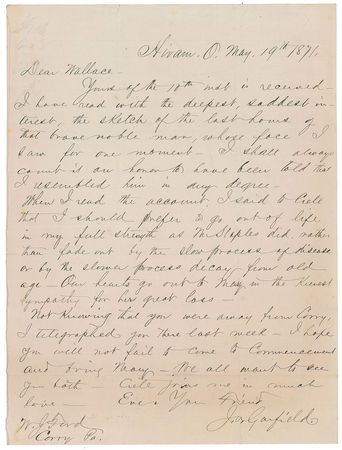 Hiram. O. May. 19th 1871.
Dear Wallace -
Yours of the 10th inst is received -
I have read with the deepest, saddest in-
terest, the sketch of the last hours of
that brave noble man, whose face I
saw for one moment - I shall always
count it an honor to have been told that
I resembled him in any degree -
When I read the account, I said to Crete
that I should prefer to go out of life
in my full strength as Mr Staples did, rather
than fade out by the slow process of disease
or by the slower process decay from old
age - Our hearts go out to May, in the keenest
sympathy for her great loss -
Not knowing that you were away from Corry,
I telegraphed you there last week - I hope
you will not fail to come to Commencement
and bring May - We all want to see
you both - Crete joins me in much
love - Ever Your Friend
W. J. Ford J. A. Garfield
Corry Pa.